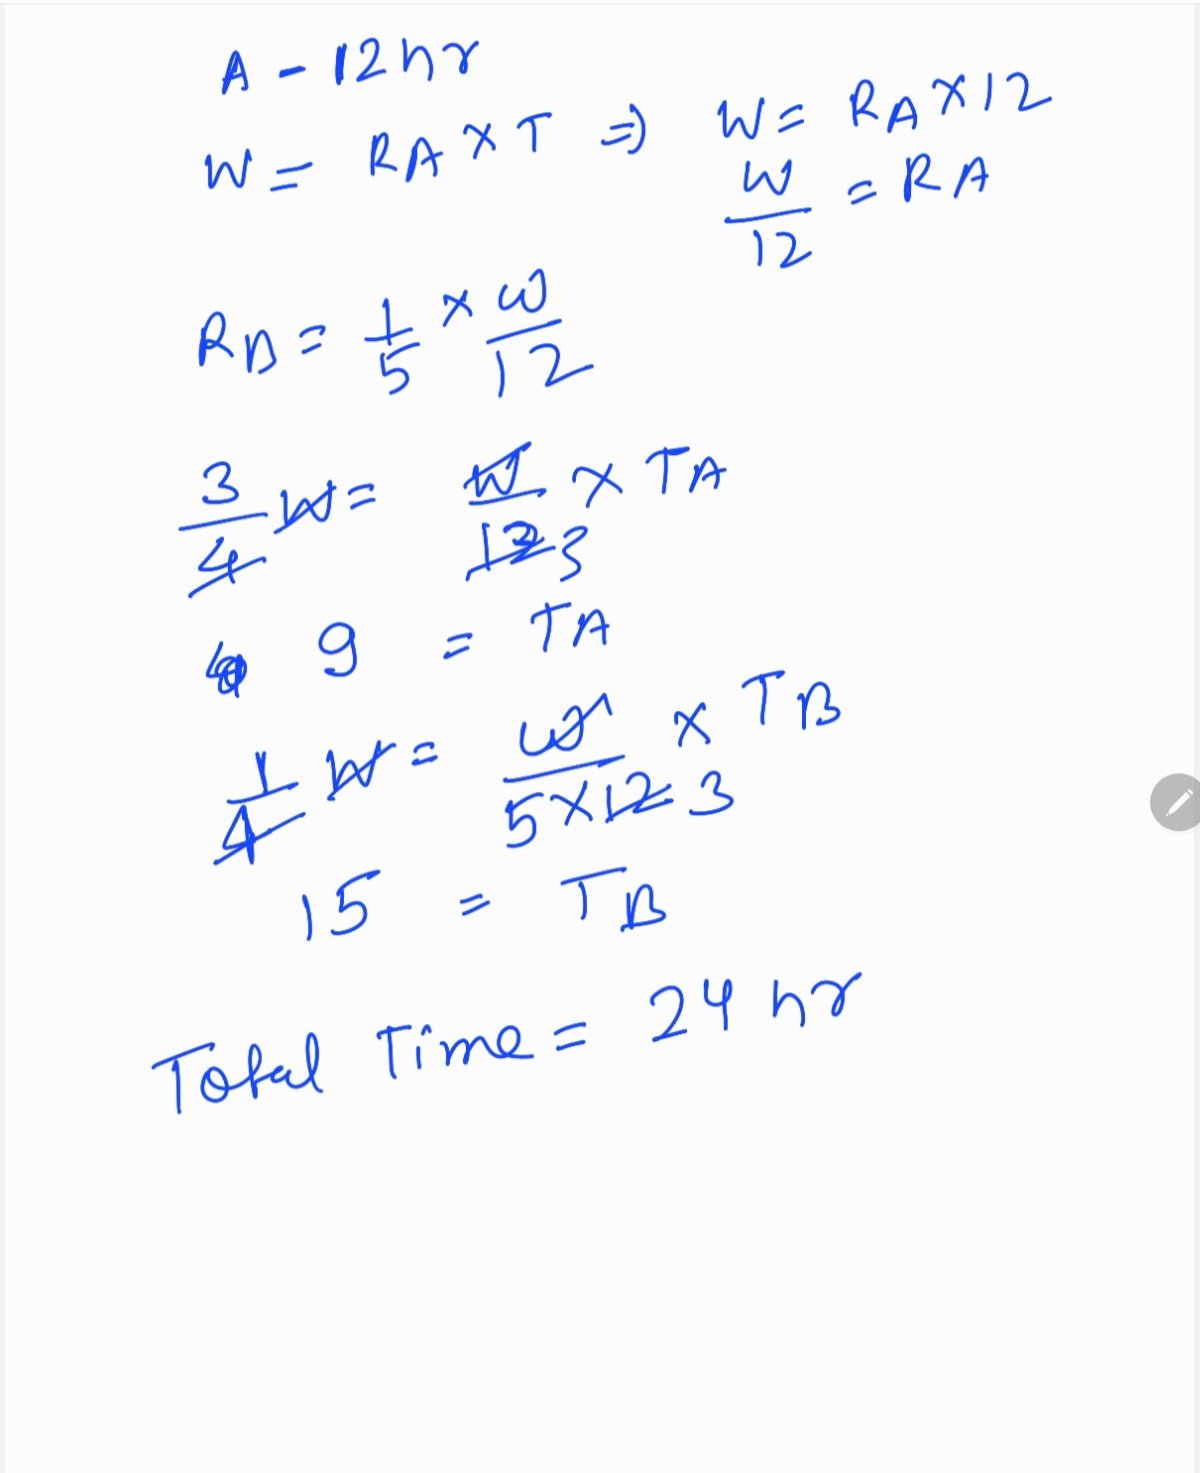 A - 12 hr
W = RA × T ⇒ W = RA × 12
W/12 = RA
RB = 1/5 × W/12
3/4 W = W/12 3 × TA
9 = TA
1/4 W = W/5×12 3 × TB
15 = TB
Total Time = 24 hr